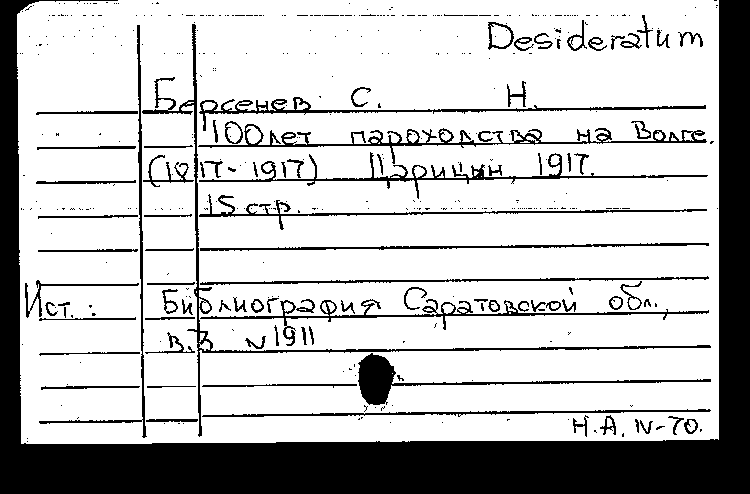 Desideratum
Берсенев С. Н.
100 лет пароходства на Волге.
(1817-1917) Царицын, 1917.
15 стр.
Ист.: Библиография Саратовской обл.,
в.3 N 1911
Н.А. IV-70.